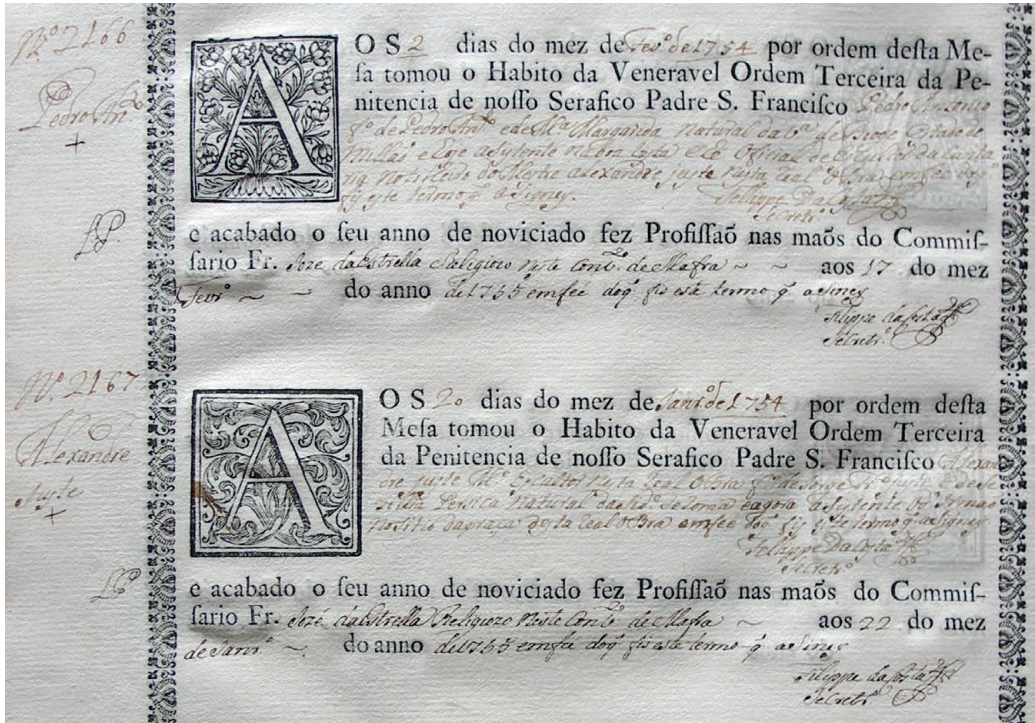 Nº 2166
Pedro Antº
+
LP.
AOS 2 dias do mez de Fevº de 1754 por ordem deſta Me-
ſa tomou o Habito da Veneravel Ordem Terceira da Pe-
nitencia de noſſo Serafico Padre S. Franciſco Pedro Antonio
fº de Pedro Antº e de Mª Margarida natural da vª de
Milla e hoje asystente na obra Official de
do Mestre Alexandre juste nesta Real Obra em fee doq
fiz este termo q asigney.
Felippe Da Costa
Secretrº
e acabado o ſeu anno de noviciado fez Profiſſaõ nas maõs do Commiſ-
ſario Fr. Joze da Estrella Religiozo neste Convtº de Mafra ~ ~ aos 17 do mez
Fevrº ~ ~ do anno de 1755 em fee doq fis este termo q asiney
Filippe da Costa
Secretrº
Nº. 2167
Alexandre
Juste
+
LP
AOS 20 dias do mez de Janrº de 1754 por ordem deſta
Meſa tomou o Habito da Veneravel Ordem Terceira
da Penitencia de noſſo Serafico Padre S. Franciſco Alexan
dre juste Mº Escultor nesta Real Obra fº de juste e de
natural da de Roma e agora asystente
no sitio da praça desta Real Obra em fee doq fiz este termo q asigney
Felippe Da Costa
Secretrº
e acabado o ſeu anno de noviciado fez Profiſſaõ nas maõs do Commiſ-
ſario Fr. Jozé da Estrella Religiozo Neste Convtº de Mafra ~ aos 22 do mez
de Janrº ~ do anno de 1755 em fee doq fis este termo q asiney
Filippe da Costa
Secretrº